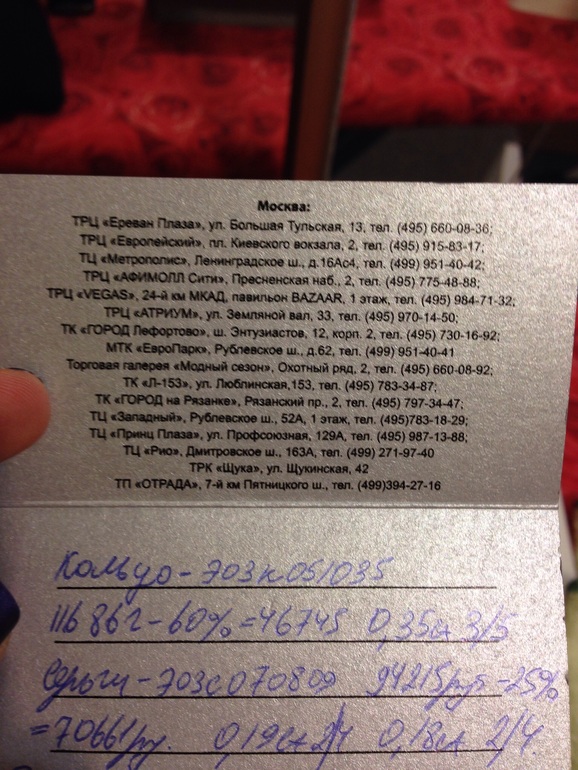 Москва:
ТРЦ «Ереван Плаза», ул. Большая Тульская, 13, тел. (495) 660-08-36;
ТРЦ «Европейский», пл. Киевского вокзала, 2, тел. (495) 915-83-17;
ТЦ «Метрополис», Ленинградское ш., д.16Ас4, тел. (499) 951-40-42;
ТРЦ «АФИМОЛЛ Сити», Пресненская наб., 2, тел. (495) 775-48-88;
ТРЦ «VEGAS», 24-й км МКАД, павильон BAZAAR, 1 этаж, тел. (495) 984-71-32;
ТРЦ «АТРИУМ», ул. Земляной вал, 33, тел. (495) 970-14-50;
ТК «ГОРОД Лефортово», ш. Энтузиастов, 12, корп. 2, тел. (495) 730-16-92;
МТК «ЕвроПарк», Рублевское ш., д.62, тел. (499) 951-40-41
Торговая галерея «Модный сезон», Охотный ряд, 2, тел. (495) 660-08-92;
ТК «Л-153», ул. Люблинская,153, тел. (495) 783-34-87;
ТК «ГОРОД на Рязанке», Рязанский пр., 2, тел. (495) 797-34-47;
ТЦ «Западный», Рублевское ш., 52А, 1 этаж, тел. (495)783-18-29;
ТЦ «Принц Плаза», ул. Профсоюзная, 129А, тел. (495) 987-13-88;
ТЦ «Рио», Дмитровское ш., 163А, тел. (499) 271-97-40
ТРК «Щука», ул. Щукинская, 42
ТП «ОТРАДА», 7-й км Пятницкого ш., тел. (499)394-27-16
Кольцо - Э03К051035
116862 - 60% = 46745 0,35ct 3/5
Серьги - Э03С070809 94215руб -25%
= 70661ру. 0,19ct 2/4 0,18ct 2/4.